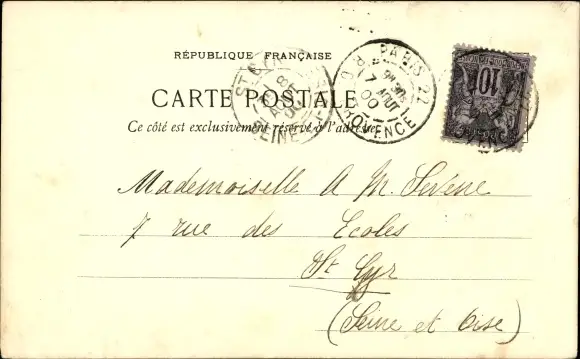 RÉPUBLIQUE FRANÇAISE
CARTE POSTALE
Ce côté est exclusivement réservé à l'adresse
PARIS 22
7 AOUT 00
R. PROVENCE
10
Mademoiselle A M. Sevène
7 rue des Ecoles
St Cyr
(Seine et Oise)